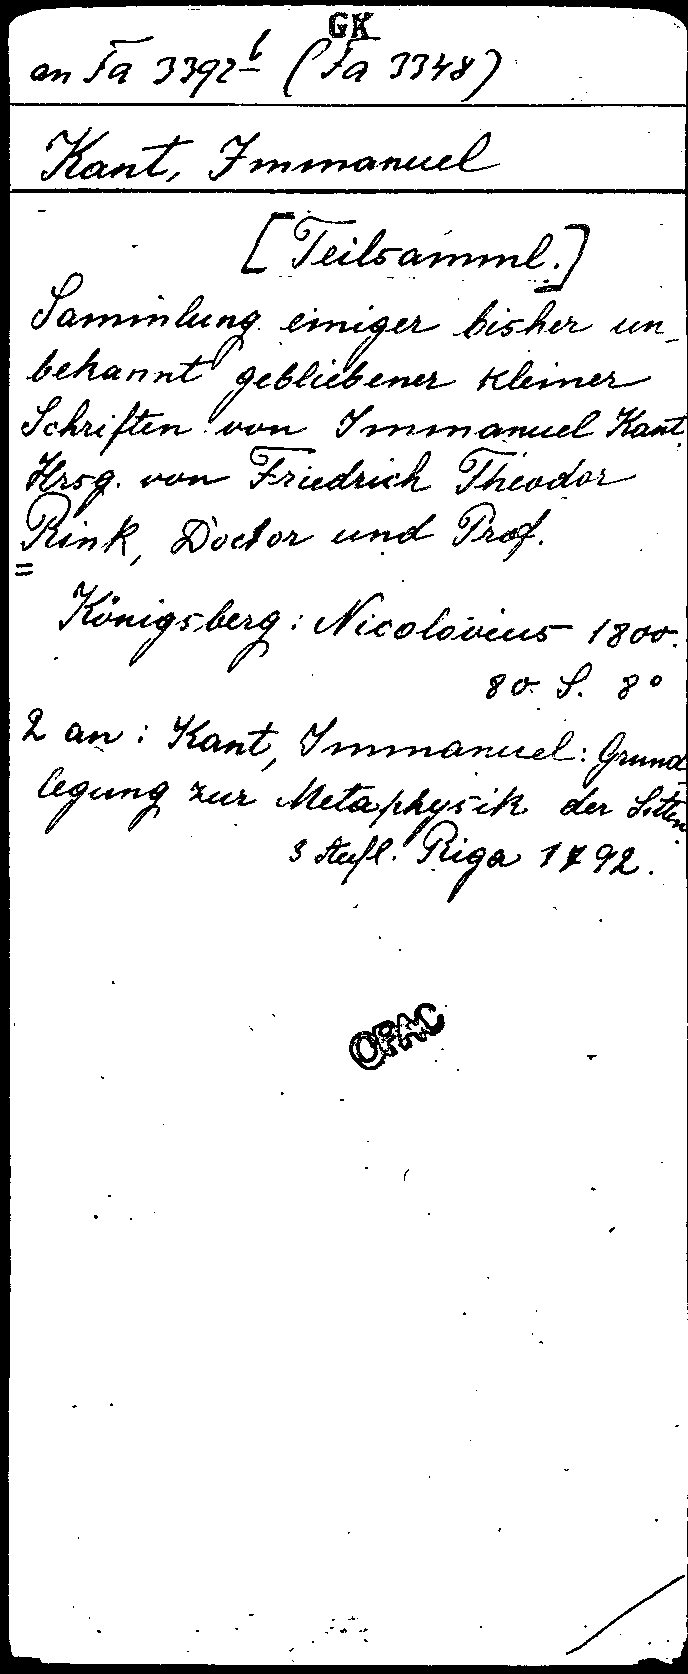 GK
an Fa 3392 b (Fa 3348)
Kant, Immanuel
[Teilsamml.]
Sammlung einiger bisher un-
bekannt gebliebener kleiner
Schriften von Immanuel Kant.
Hrsg. von Friedrich Theodor
Rink, Doctor und Prof.
Königsberg: Nicolovius 1800.
80 S. 8°
2 an: Kant, Immanuel: Grund-
legung zur Metaphysik der Sitten.
3 Aufl. Riga 1792.
OPAC